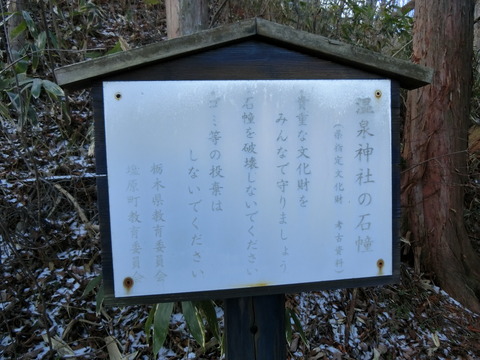 温泉神社の石幢
（県指定文化財　考古資料）
貴重な文化財を
みんなで守りましょう
石幢を破壊しないでください
ゴミ等の投棄は
しないでください
栃木県教育委員会
塩原町教育委員会